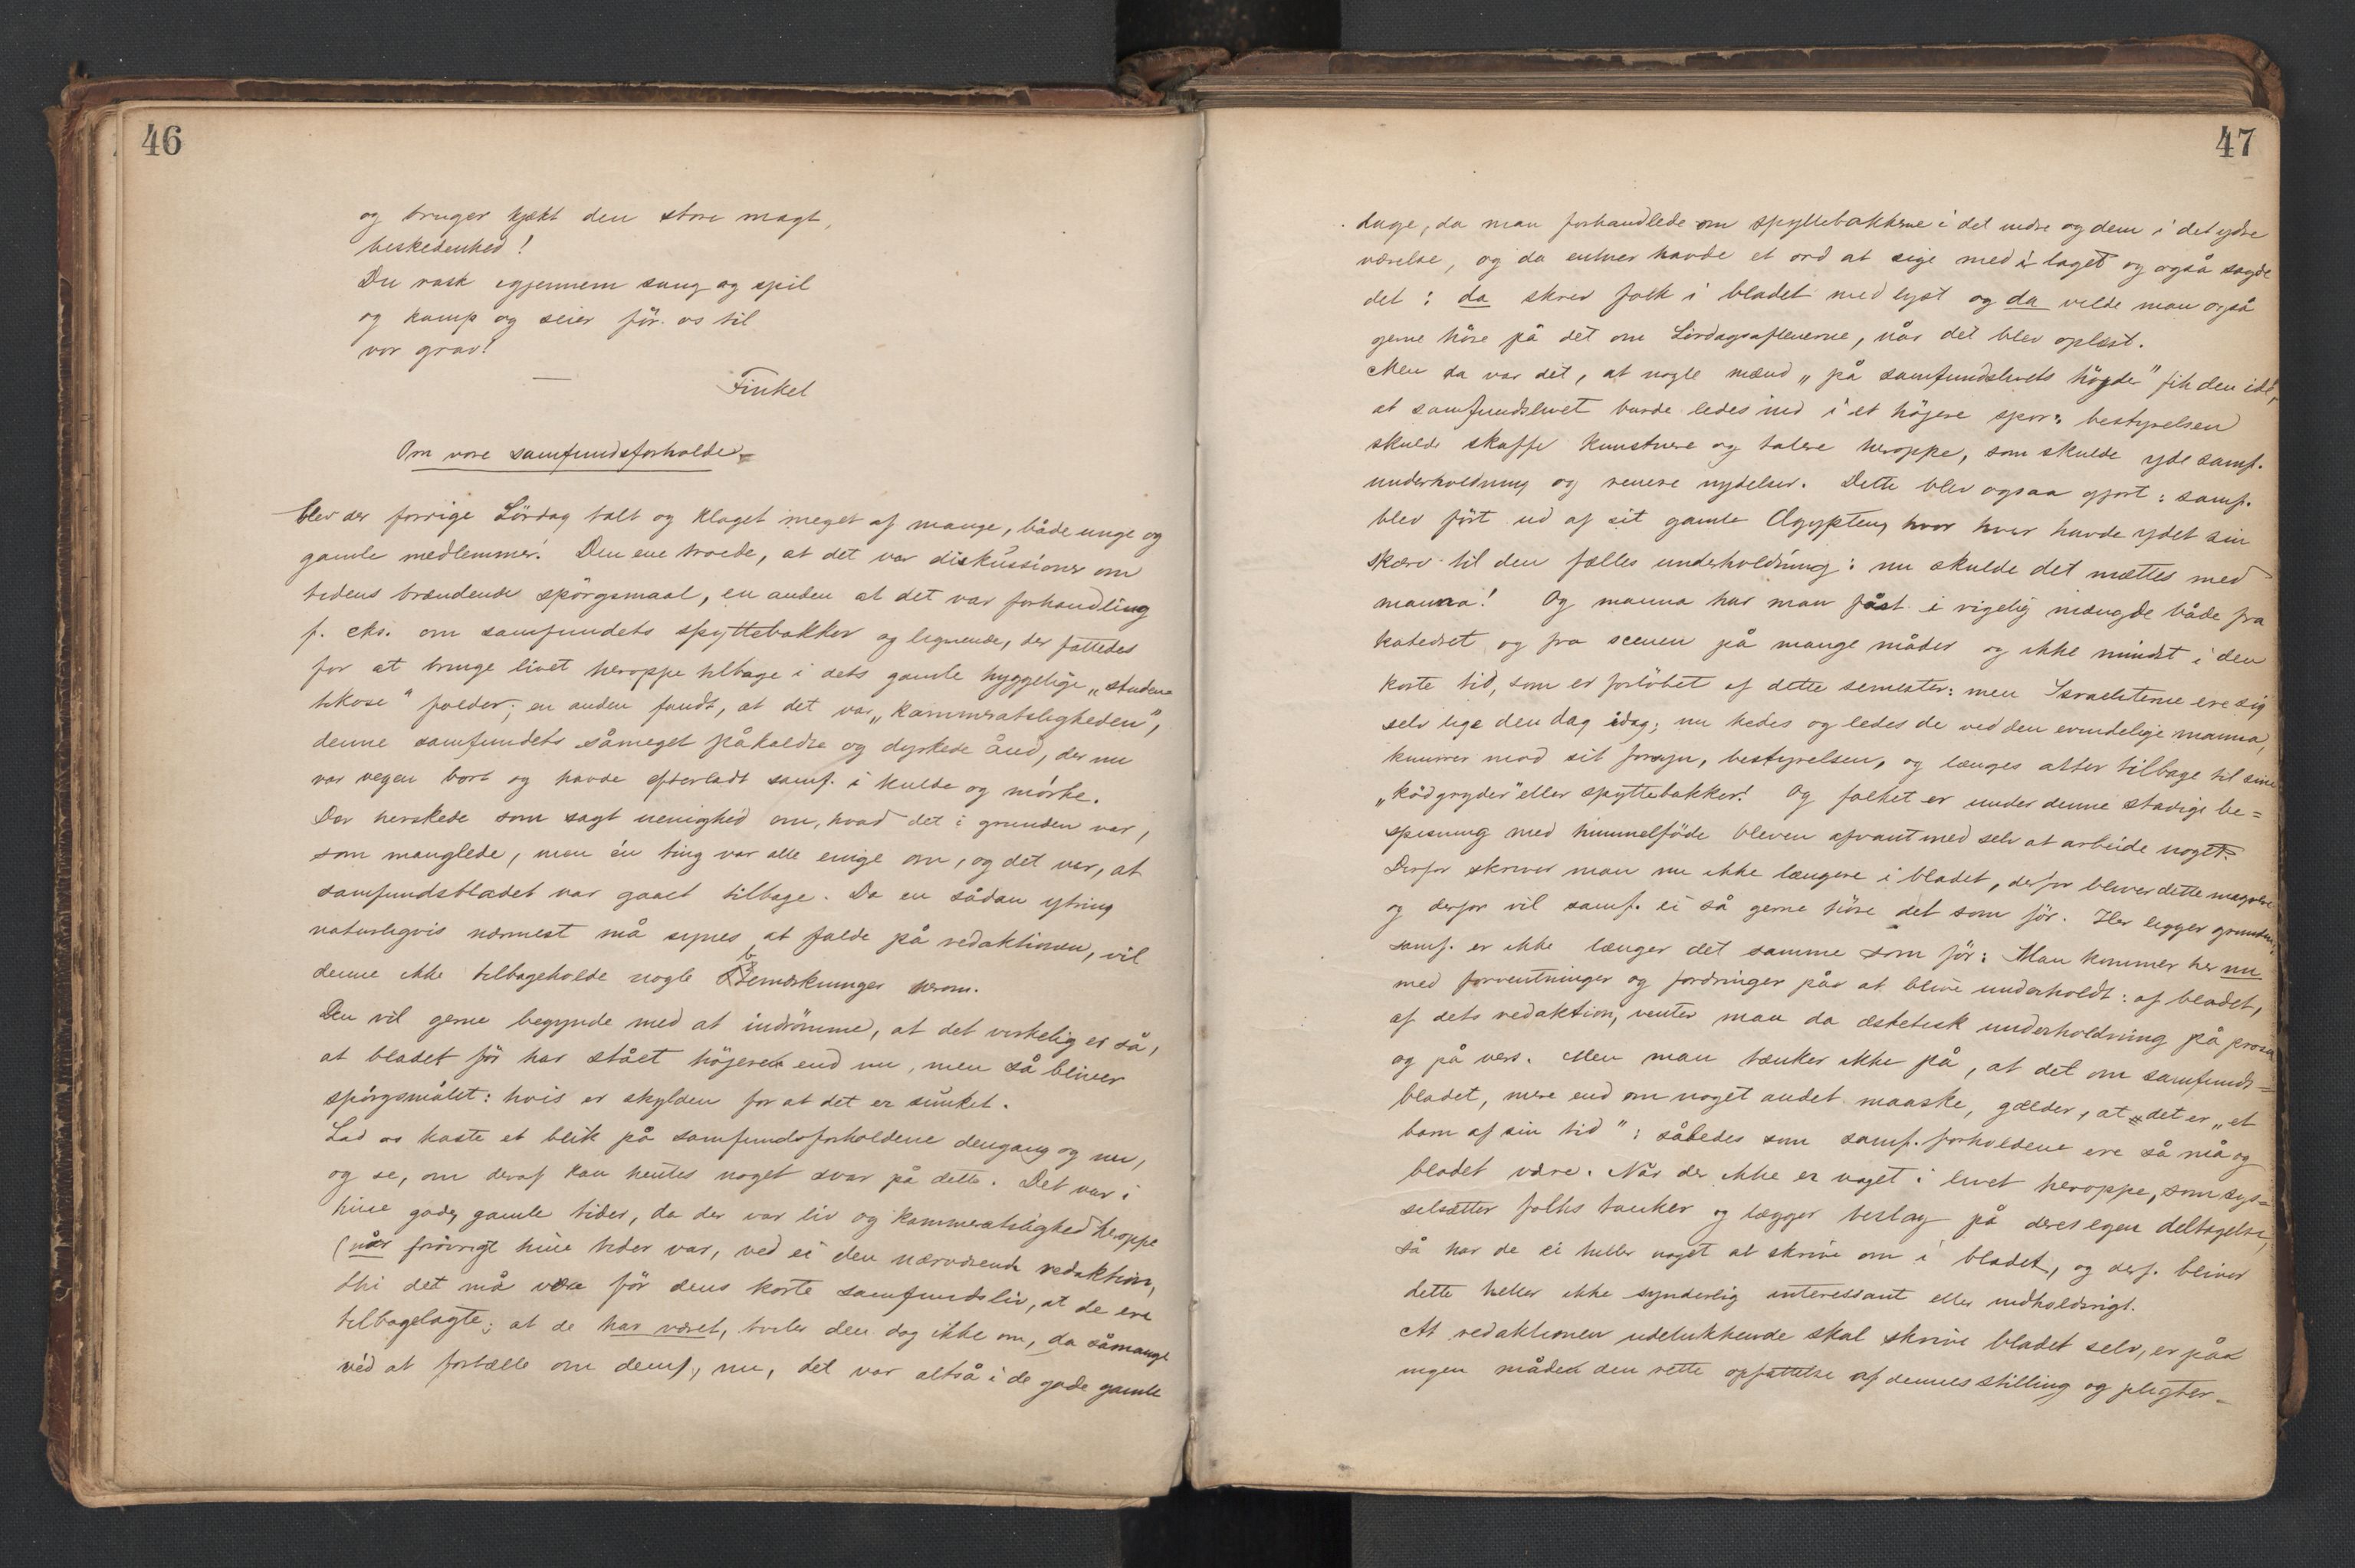 46
og bruger kjækt den store magt,
beskedenhed!
Du rask igjennem sang og spil
og kamp og seier før os til
vor grav!
—
Finkel
Om vore samfundsforholde
blev der forrige Lördag talt og klaget meget af mange, både unge og
gamle medlemmer. Den ene troede, at det var diskussioner om
tidens brændende spörgsmaal, en anden at det var forhandling
f. eks. om samfundets spyttebakker og lignende, der fattedes
for at bringe livet heroppe tilbage i dets gamle hyggelige „studen-
tikose" folder; en anden fandt, at det var „kammeratsligheden",
denne samfundets såmeget påkaldte og dyrkede ånd, der nu
var vegen bort og havde efterladt samf. i kulde og mörke.
Der herskede som sagt uenighed om, hvad det i grunden var,
som manglede, men én ting var alle enige om, og det var, at
samfundsbladet var gaaet tilbage. Da en sådan ytring
naturligvis nærmest må synes at falde på redaktionen, vil
denne ikke tilbageholde nogle bemærkninger herom.
Den vil gerne begynde med at indrömme, at det virkelig er så,
at bladet för har stået höjere end nu, men så bliver
spörgsmålet: hvis er skylden for at det er sunket.
Lad os kaste et blik på samfundsforholdene dengang og nu,
og se, om deraf kan hentes noget svar på dette. Det var i
hine gode, gamle tider, da der var liv og kammeratslighed heroppe
(når forövrigt hine tider var, ved ei den nærværende redaktion,
thi det må være för dens korte samfundsliv, at de ere
tilbagelagte; at de har været, tviler den dog ikke om, da såmange
véd at fortælle om dem), nu, det var altså i de gode gamle
47
dage, da man forhandlede om spyttebakkerne i det indre og dem i det ydre
værelse, og da enhver havde et ord at sige med i laget og også sagde
det: da skrev folk i bladet med lyst og da vilde man også
gerne höre på det om Lördagsaftenerne, når det blev oplæst.
Men da var det, at nogle mænd „på samfundslivets höyde" fik den idé,
at samfundslivet burde ledes ind i et höjere spor: bestyrelsen
skulde skaffe kunstnere og talere heroppe, som skulde yde samf.
underholdning og renere nydelser. Dette blev ogsaa gjort: samf.
blev fört ud af sit gamle Ægypten, hvor hver havde ydet sin
skærv til den fælles underholdning: nu skulde det mættes med
manna! Og manna har man fåat i rigelig mængde både fra
katedret og fra scenen på mange måder og ikke mindst i den
korte tid, som er forlöbet af dette semester: men Israeliterne ere sig
selv lige den dag idag; nu kedes og ledes de ved den evindelige manna,
knurrer mod sit forsyn, bestyrelsen, og længes atter tilbage til sine
„ködgryder" eller spyttebakker! Og folket er under denne stadige be=
spisning med himmelföde bleven afvant med selv at arbeide noget.
Derfor skriver man nu ikke længere i bladet, derfor bliver dette magrere
og derfor vil samf. ei så gerne höre det som för. Her ligger grunden;
samf. er ikke længer det samme som för: Man kommer her nu
med forventninger og fordringer på at blive underholdt: af bladet,
af dets redaktion, venter man da æstetisk underholdning på prosa
og på vers. Men man tænker ikke på, at det om samfunds=
bladet, mere end om noget andet maaske, gælder, at det er „et
barn af sin tid": således som samf. forholdene ere så må og
bladet være. Når der ikke er noget i livet heroppe, som sys=
selsætter folks tanker og lægger beslag på deres egen deltagelse,
så har de ei heller noget at skrive om i bladet, og derf. bliver
dette heller ikke synderlig interessant eller indholdsrigt.
At redaktionen udelukkende skal skrive bladet selv, er på
ingen måde den rette opfattelse af dennes stilling og pligter.